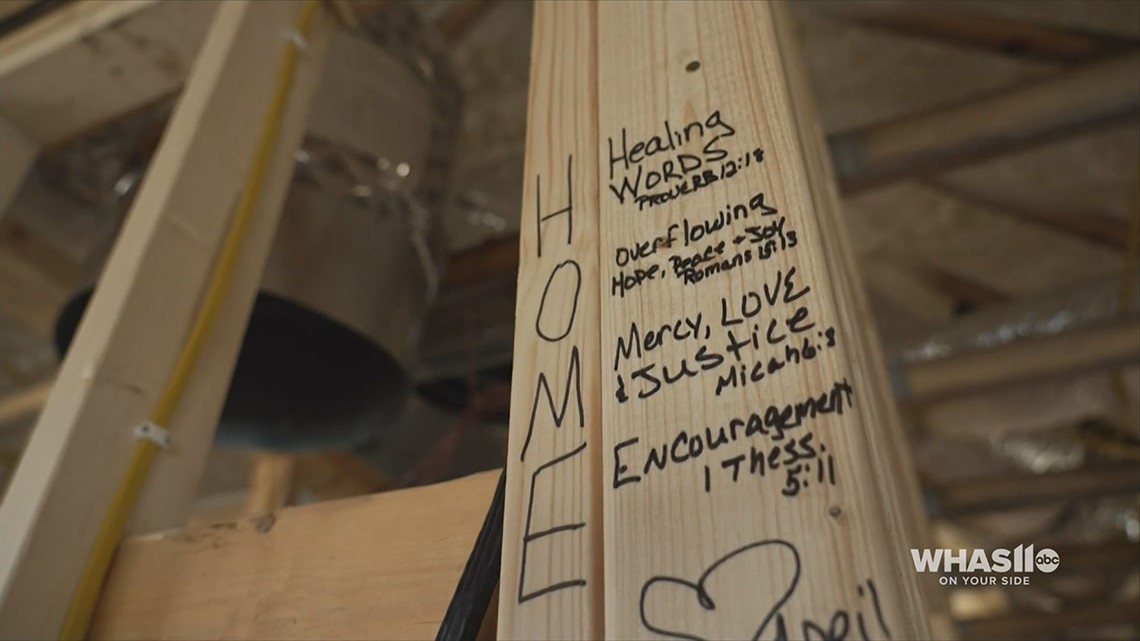 HOME
Healing
WORDS
PROVERB 12:18
overflowing
Hope, Peace + Joy
Romans 15:13
Mercy, LOVE
& Justice
Micah 6:8
Encouragement
1 Thess.
5:11
WHAS11 abc
ON YOUR SIDE